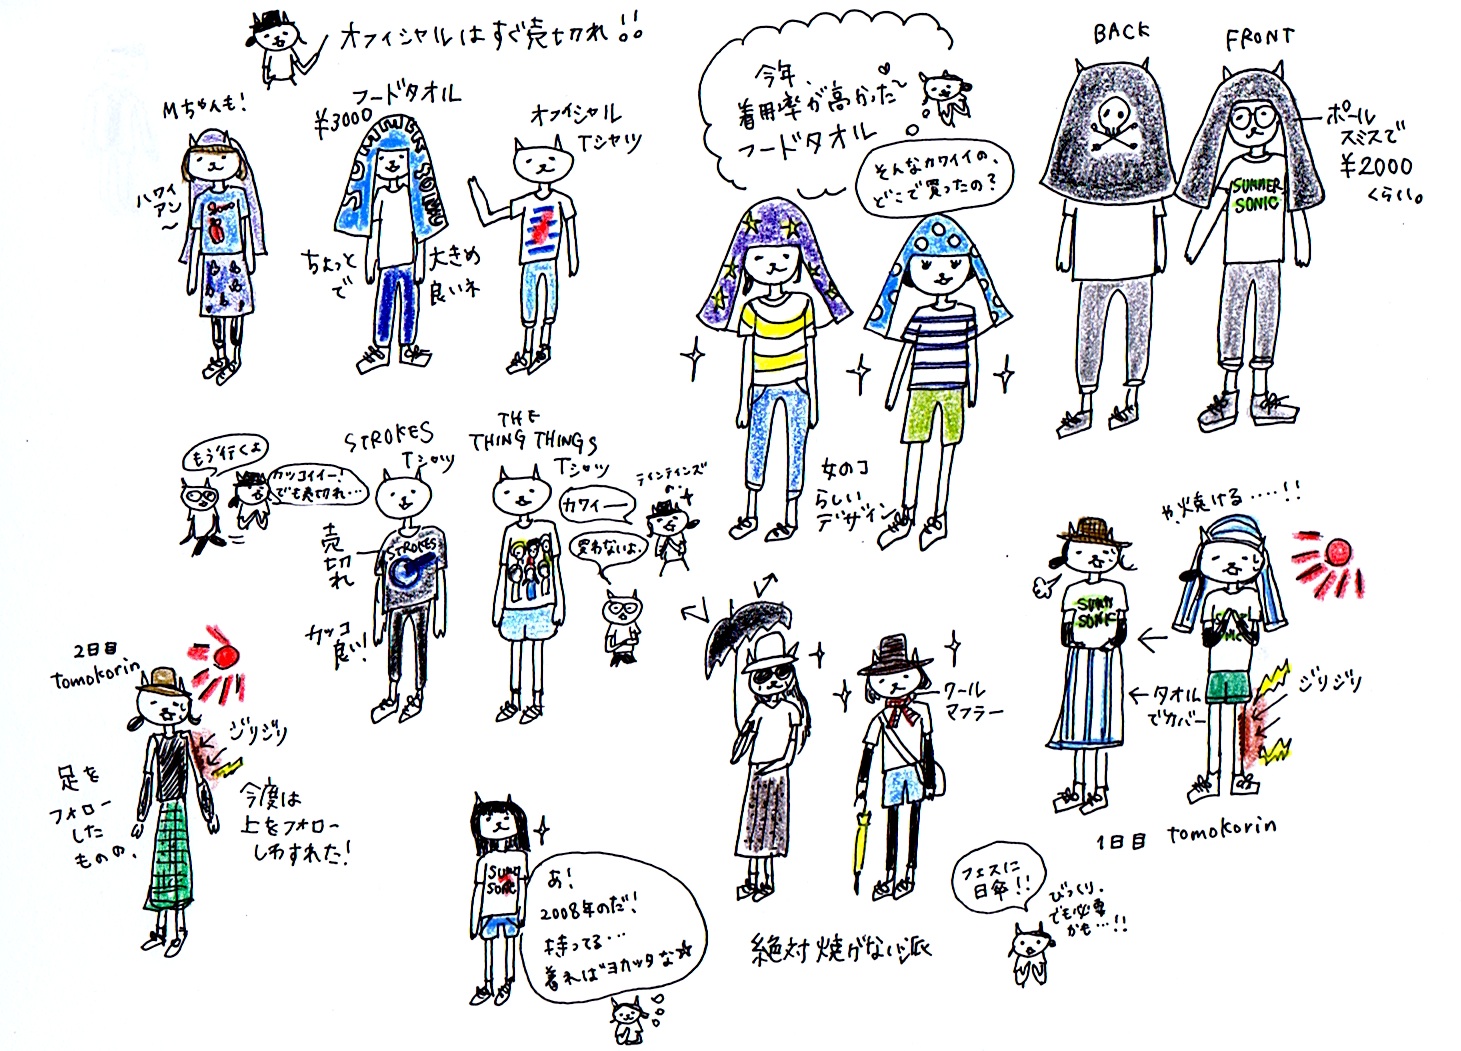 オフィシャルはすぐ売切れ!!
Mちゃんも!
ハワイ
アン
～
フードタオル
¥3000
SUMMER SONIC
ちょっと
で
大きめ
良いネ
オフィシャル
Tシャツ
今年、
着用率が高かった～
フードタオル
そんなカワイイの、
どこで買ったの?
女のコ
らしい
デザイン
BACK
FRONT
SUMMER
SONIC
ポール
スミスで
¥2000
くらい。
もう行くよ
カッコイイー!
でも売切れ…
STROKES
Tシャツ
STROKES
売
切
れ
カッコ
良い!
THE
THING THINGS
Tシャツ
ティンティンズ
の
カワイー
買わないよ。
2日目
tomokorin
ジリジリ
足を
フォロー
した
ものの、
今度は
上をフォロー
しわすれた!
SUMM
SONIC
あ!
2008年のだ!
持ってる…
着ればヨカッタな☆
クール
マフラー
絶対焼かない派
フェスに
日傘!!
びっくり。
でも必要
かも…!!
や、焼ける……!!
SUMM
SONIC
タオル
でカバー
ジリジリ
1日目 tomokorin